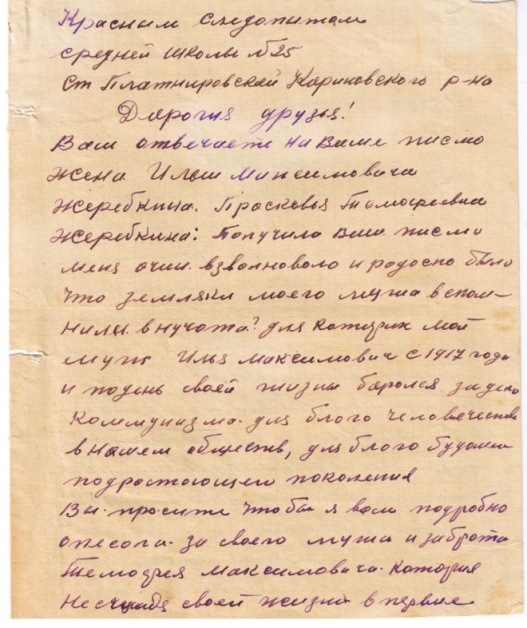 Красным Следопытам
средней школы №25
Ст Платнировской Кориновского р-на
Дарогия друзья!
Вам отвечает на Ваше писмо
жена Ильи Максимовича
Жеребкина. Прасковья Тимофеевна
Жеребкина: Получила Ваше писмо
меня очин взволноволо и радосно было
что земляки моего мужа вспом-
нили внучата? для которих мой
муж Илья Максимович с 1917 года
и подень своей жизни боролся за дело
Коммунизма. для блого человечества
в нашем обществ, для блого будощем
подростающем поколения
Вы. просите чтобы я вам подробно
описола за своего мужа и за брота
Темофея Максимовича. которыя
своей жизни в первые